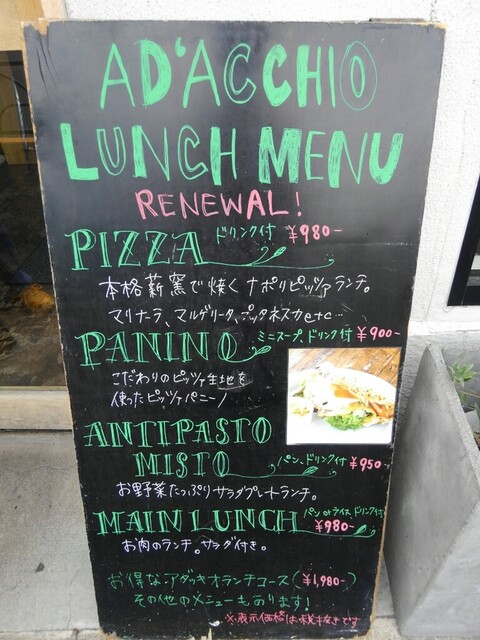 AD'ACCHIO
LUNCH MENU
RENEWAL!
PIZZA ドリンク付 ¥980-
本格薪窯で焼くナポリピッツァランチ。
マリナーラ、マルゲリータ、プッタネスカetc…
PANINO ミニスープ、ドリンク付 ¥900-
こだわりのピッツァ生地を
使ったピッツァパニーノ
ANTIPASTO
MISTO パン、ドリンク付 ¥950
お野菜たっぷりサラダプレートランチ。
MAIN LUNCH パンorライス ドリンク付
¥980-
お肉のランチ。サラダ付き。
お得なアダッキオランチコース(¥1,980-)
その他のメニューもあります!
※表示価格は税抜きです